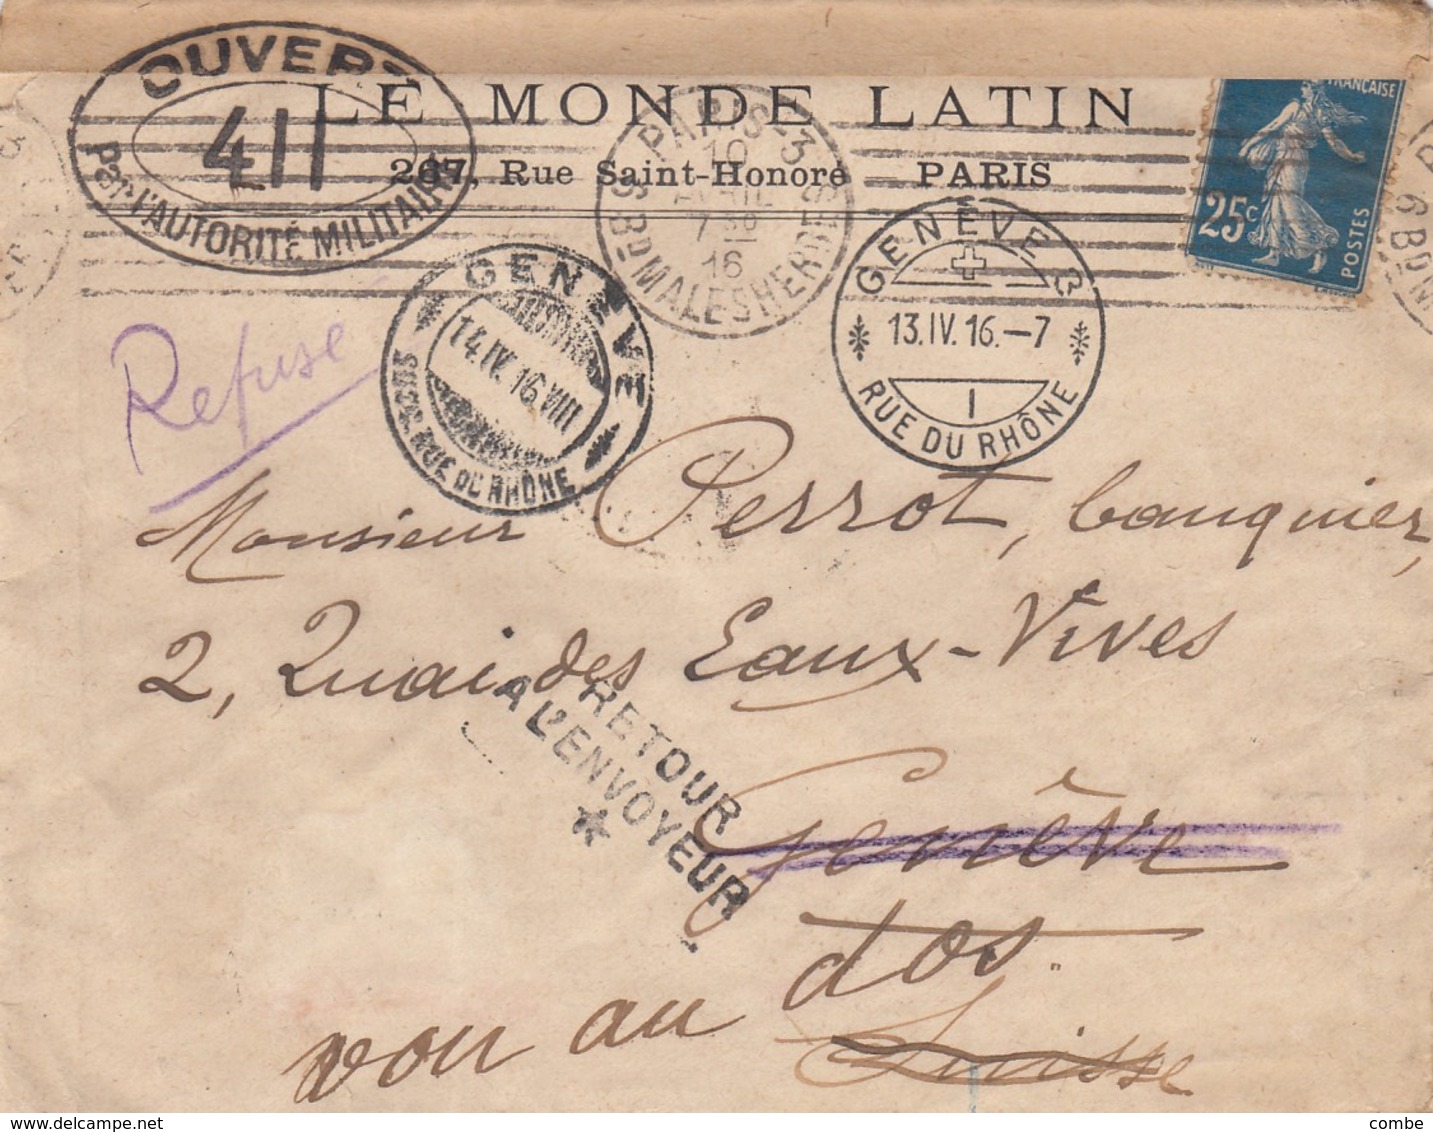 OUVERT
411
Par l'AUTORITÉ MILITAIRE
LE MONDE LATIN
267, Rue Saint-Honoré — PARIS
FRANÇAISE
25c
POSTES
PARIS-3
10
AVRIL
7 30
16
Bd MALESHERBES
GENÈVE 3
13.IV.16.-7
I
RUE DU RHÔNE
GENÈVE
14.IV.16.VIII
SUCC. RUE DU RHÔNE
Refuse
Monsieur Perrot, banquier,
2, Quai des Eaux-Vives
RETOUR
A L'ENVOYEUR
Genève
voir au dos.
Suisse
combe